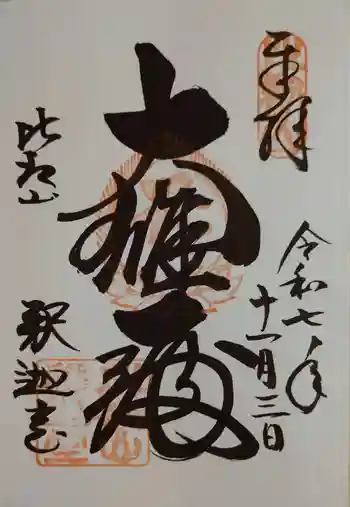 奉拝
令和七年
十一月三日
大雄殿
比叡山
釈迦堂